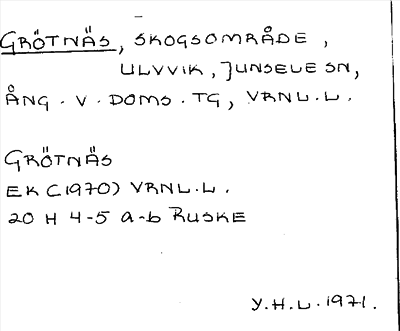 GRÖTNÄS, SKOGSOMRÅDE,
ULVVIK, JUNSELE SN,
ÅNG. V. DOMS. TG, VRNL.L.
GRÖTNÄS
EK (1970) VRNL.L.
20 H 4-5 a-b RUSKE
Y.H.L. 1971.